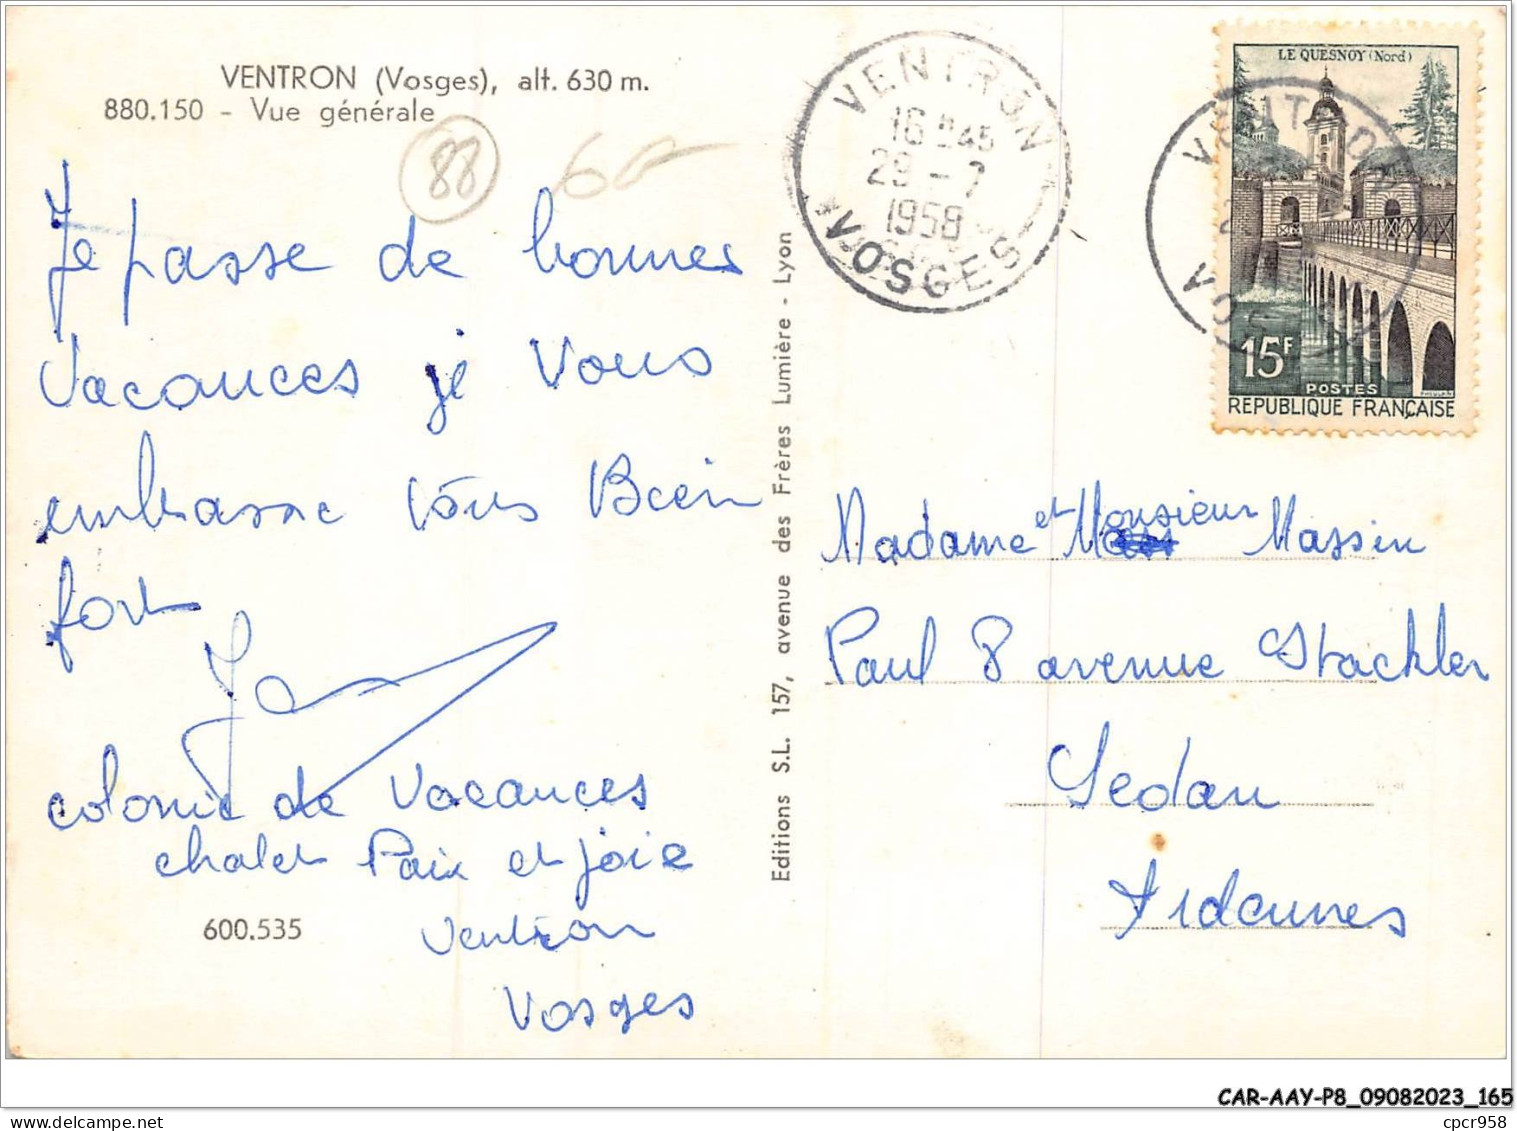 VENTRON (Vosges), alt. 630 m.
880.150 - Vue générale
88
60
Je passe de bonnes
Vacances je Vous
embrasse tous Bien
fort
colonie de Vacances
chalet Paix et joie
Ventron
Vosges
600.535
Editions S.L. 157, avenue des Frères Lumière - Lyon
VENTRON
16 H 45
29 - 7
1958
VOSGES
LE QUESNOY (Nord)
15F
POSTES
REPUBLIQUE FRANÇAISE
Madame et Monsieur Massin
Paul 8 avenue Stackler
Sedan
Ardennes
CAR-AAY-P8_09082023_165
cpcr958